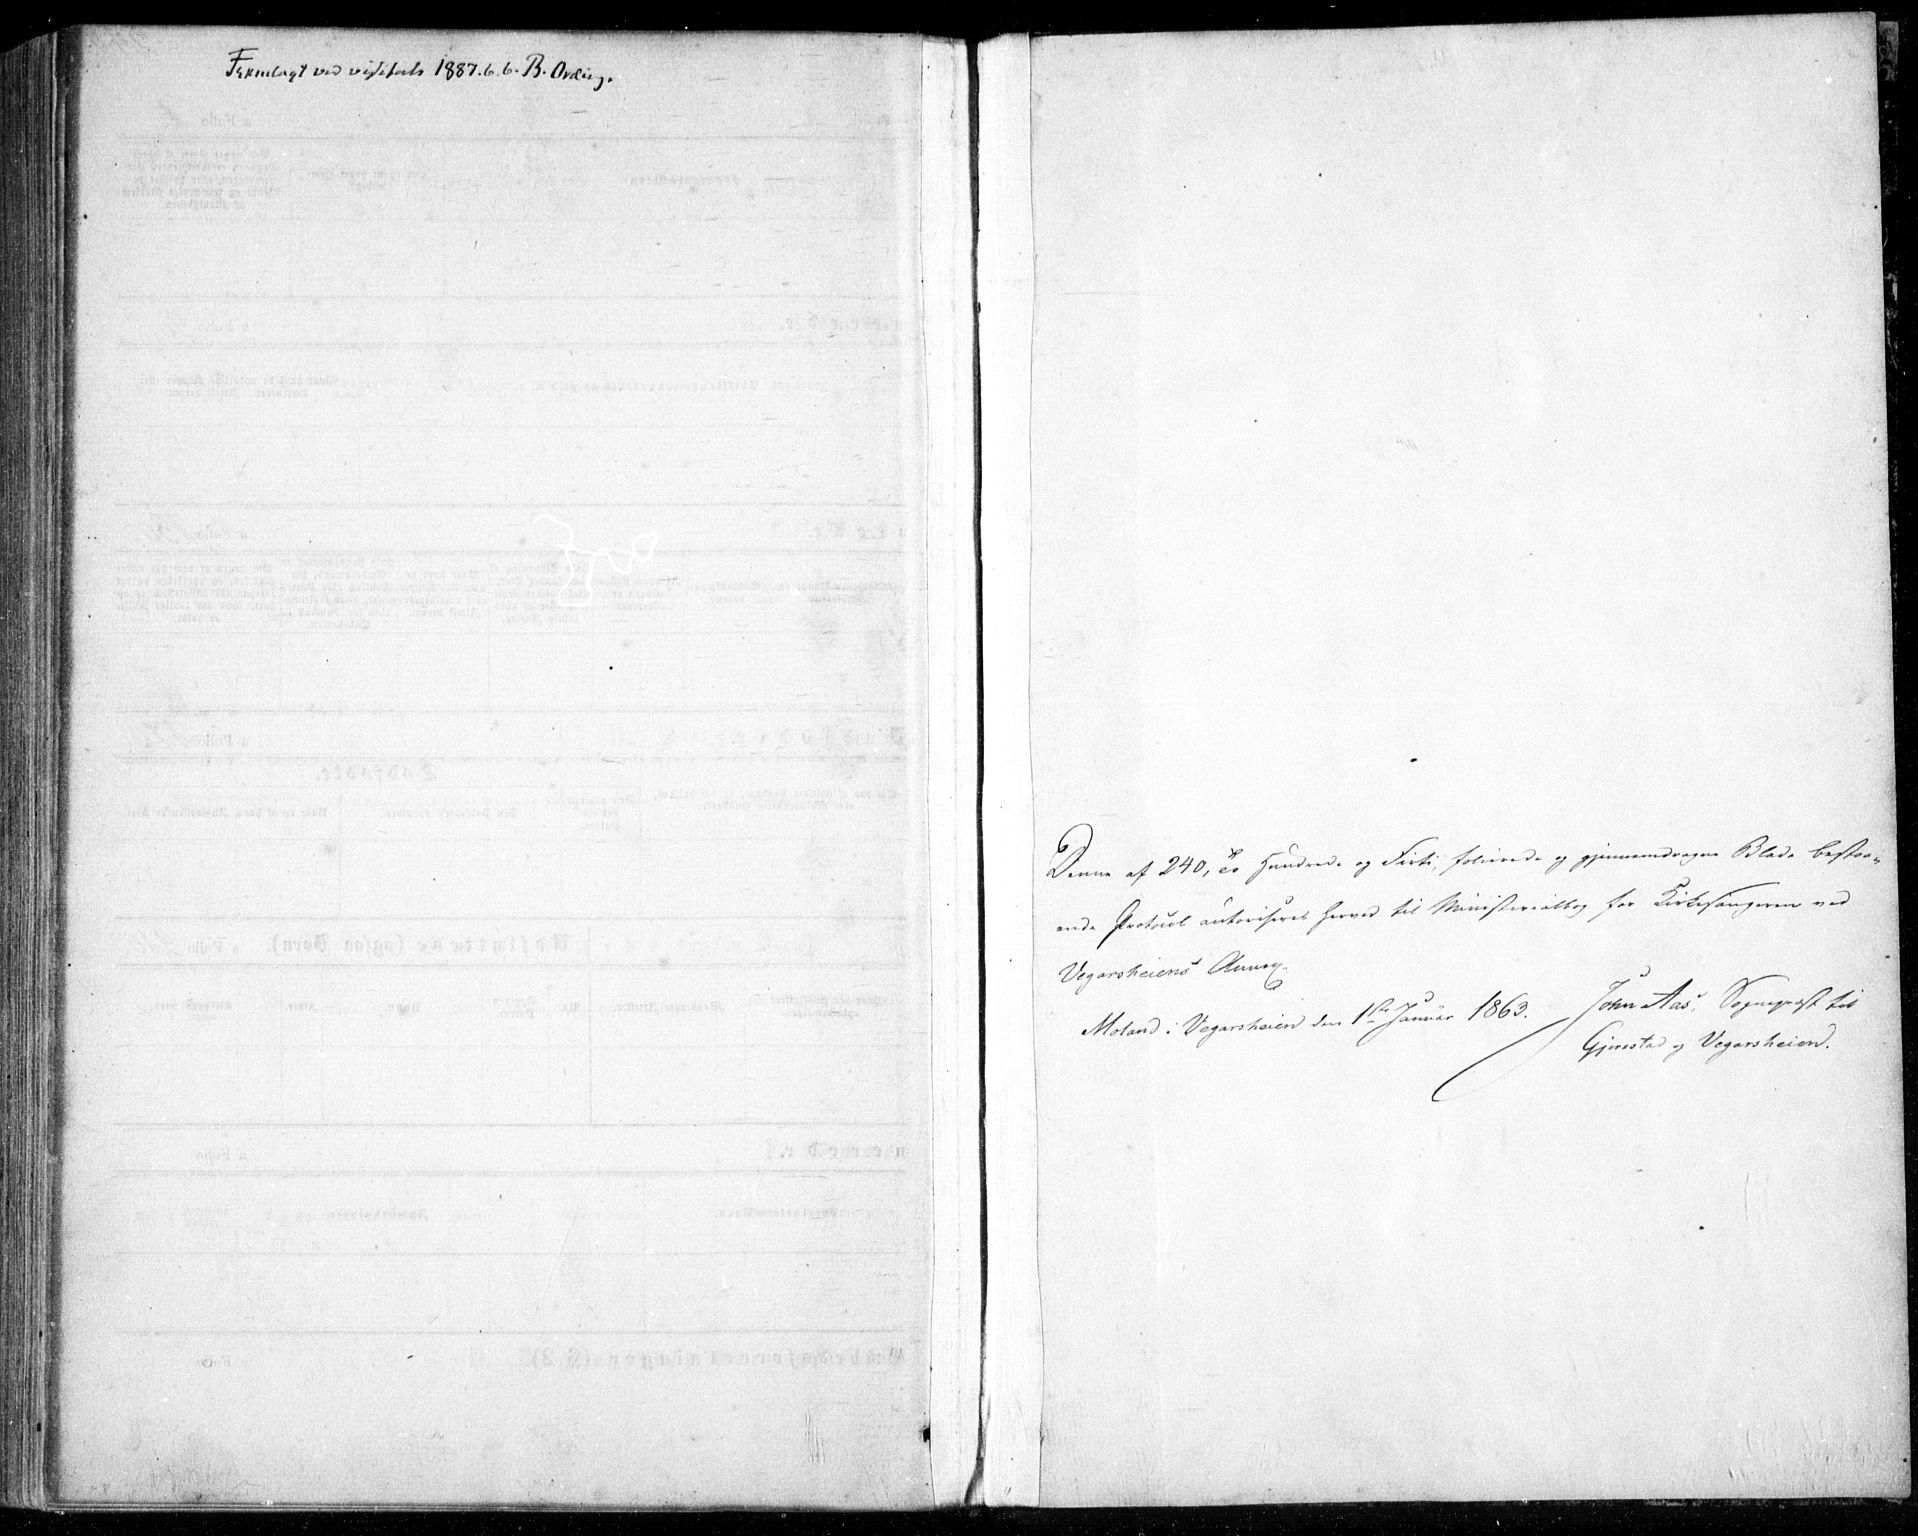 Fremlagt ved visitats 1887.6.6. B. Ording.
Denne af 240, to Hundrede og Firti, folierede og gjennemdragne Blade bestaa-
ende Protocol autoriseres herved til Ministerialbog for Kirkesangeren ved
Vegarsheiens Annex.
Moland i Vegarsheien den 1ste Januar 1863. John Aas, Sognepræst til
Gjerestad og Vegarsheien.